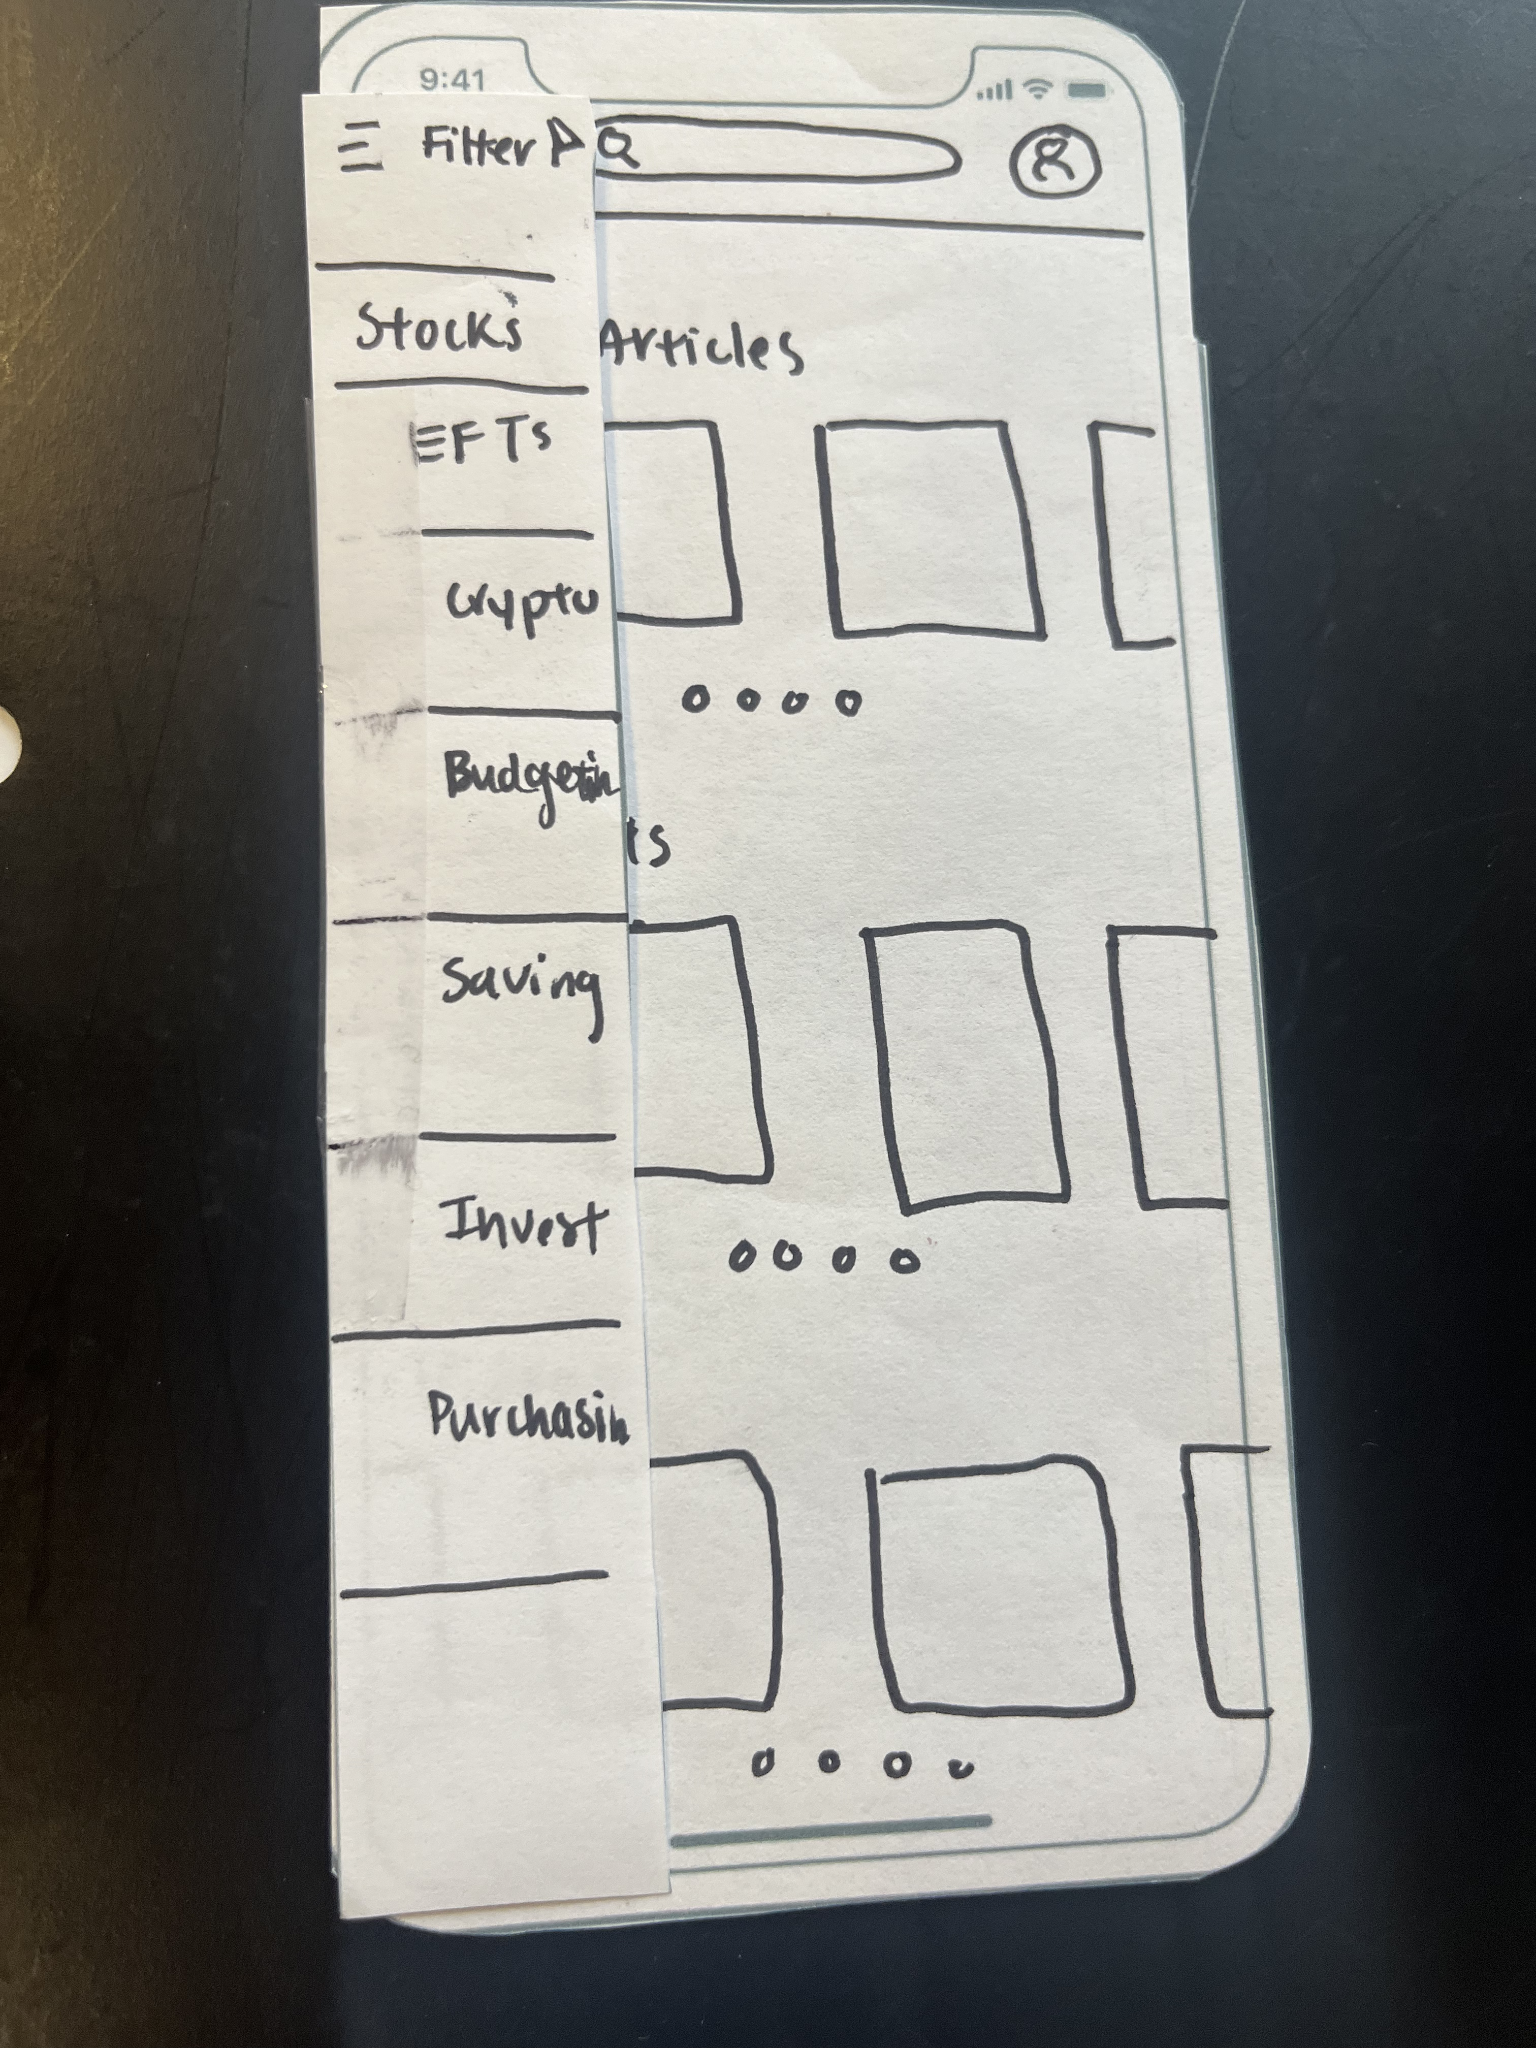 9:41
Filter
Stocks
Articles
EFTs
Crypto
Budgetin
ts
Saving
Invest
Purchasin